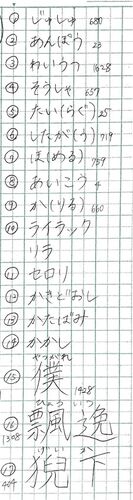 ① じじゅ 680
② あんぽう 23
③ わいうつ 1628
④ そうしゃ 657
⑤ たい(らぐ) 25
⑥ したが(う) 719
⑦ ほ(める) 759
⑧ あいこう 4
⑨ か(りる) 660
⑩ ライラック
リラ
⑪ セロリ
⑫ かきどおし
⑬ かたばみ
⑭ かかし
やつがれ
⑮ 僕 1428
ひょう いつ
⑯ 飄逸
1308
げい か
⑰ 猊下
404